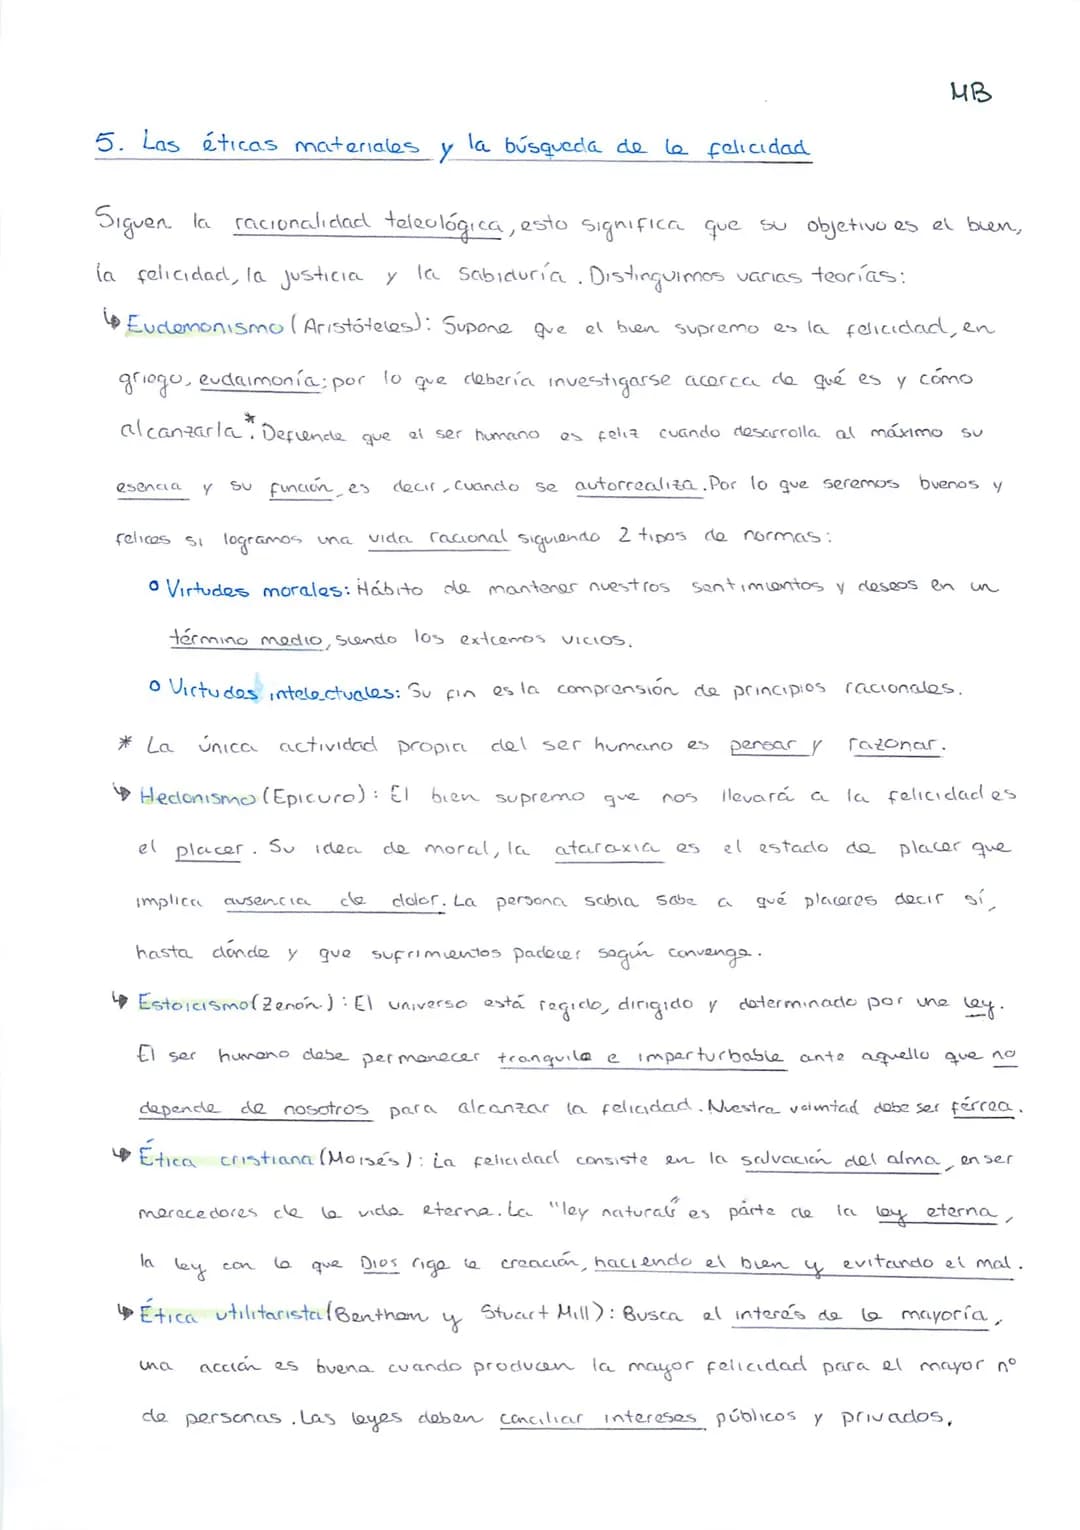 MB
5. Las éticas materiales y la búsqueda de la felicidad
Siguen la racionalidad teleológica, esto significa que su objetivo es el bien,
la felicidad, la justicia y la sabiduría. Distinguimos varias teorías:
↳ Eudemonismo (Aristóteles): Supone que el bien supremo es la felicidad, en
griego, eudaimonía; por lo que debería investigarse acerca de qué es y cómo
alcanzarla*. Defiende que el ser humano es feliz cuando desarrolla al máximo su
esencia y su función, es decir, cuando se autorrealiza. Por lo que seremos buenos y
felices si logramos una vida racional siguiendo 2 tipos de normas:
o Virtudes morales: Hábito de mantener nuestros sentimientos y deseos en un
término medio, siendo los extremos vicios.
o Virtudes intelectuales: Su fin es la comprensión de principios racionales.
* La única actividad propia del ser humano es pensar y razonar.
↳ Hedonismo (Epicuro): El bien supremo que nos llevará a la felicidad es
el placer. Su idea de moral, la ataraxia es el estado de placer que
implica ausencia de dolor. La persona sabia sabe a qué placeres decir sí,
hasta dónde y que sufrimientos padecer según convenga.
↳ Estoicismo (Zenón): El universo está regido, dirigido y determinado por una ley.
El ser humano debe permanecer tranquilo e imperturbable ante aquello que no
depende de nosotros para alcanzar la felicidad. Nuestra voluntad debe ser férrea.
↳ Ética cristiana (Moisés): La felicidad consiste en la salvación del alma, en ser
merecedores de la vida eterna. La "ley natural" es párte de la ley eterna,
la ley con la que Dios rige la creación, haciendo el bien y evitando el mal.
↳ Ética utilitarista (Bentham y Stuart Mill): Busca el interés de la mayoría,
una acción es buena cuando producen la mayor felicidad para el mayor nº
de personas. Las leyes deben conciliar intereses públicos y privados.